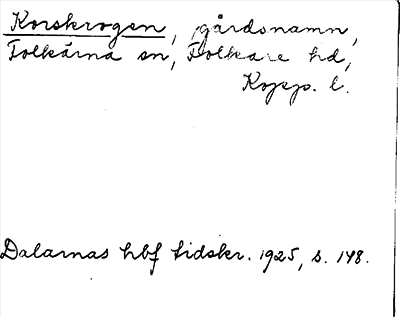 Korskrogen, gårdsnamn,
Folkärna sn, Folkare hd,
Kopp. l.
Dalarnas hbf tidskr. 1925, s. 148.